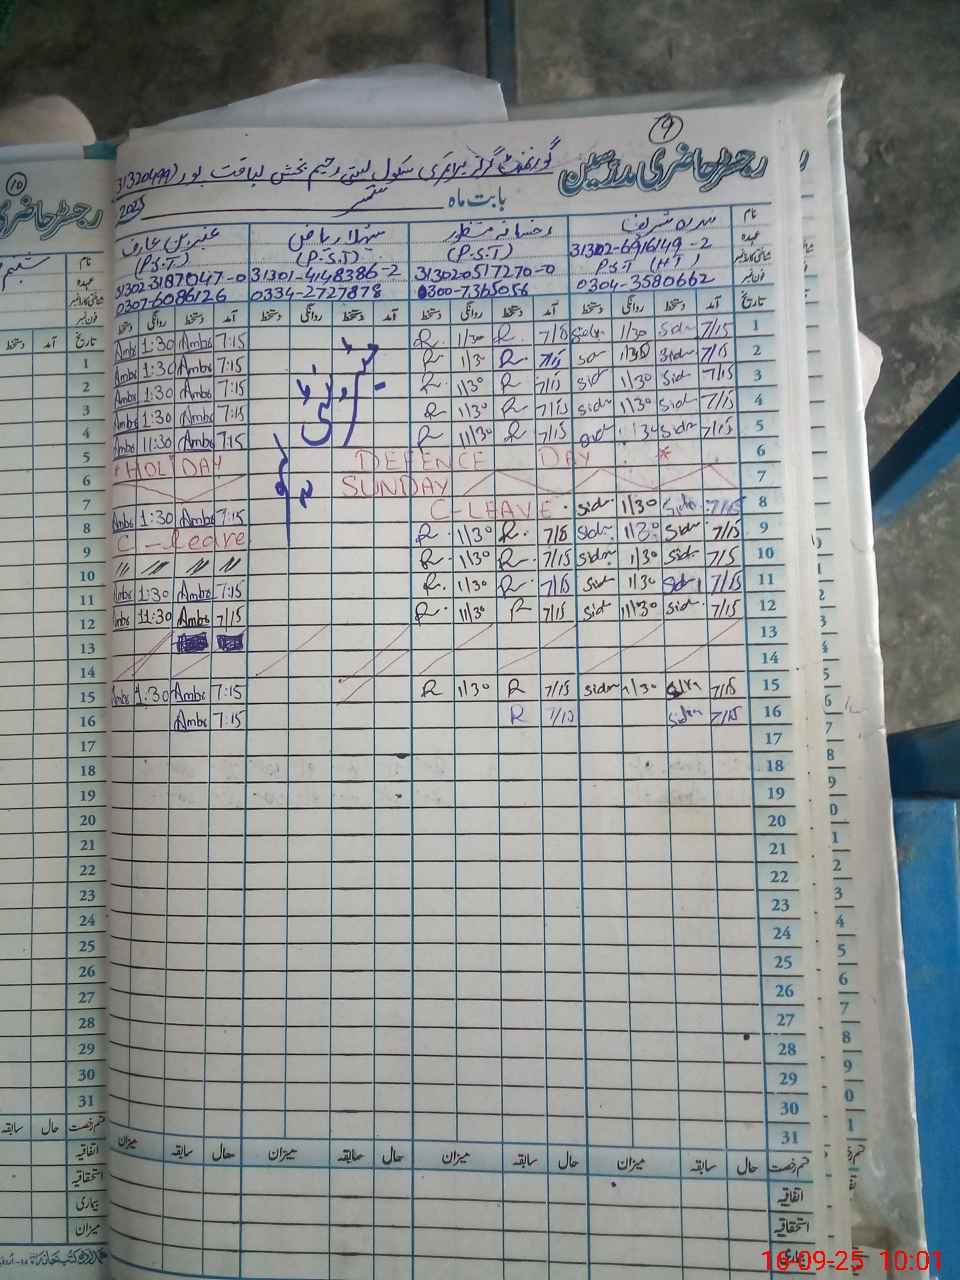 9
رجسٹر حاضری مدرسین
گورنمنٹ گرلز پرائمری سکول بستی رحیم بخش لیاقت پور (31320499
بابت ماہ ستمبر 2025
نام سدرہ شریف رخسانہ منظور سہیلا ریاض عنبرین عارف
عہدہ (P.S.T) (P.S.T) (P.S.T)
شناختی کارڈ نمبر 31302-6916149-2 31302-0517270-0 31301-4148386-2 31302-3187047-0
P.S.T (HT)
فون نمبر 0304-3580662 0300-7365056 0334-2727878 0307-6086126
تاریخ آمد دستخط روانگی دستخط آمد دستخط روانگی دستخط آمد دستخط روانگی دستخط آمد دستخط روانگی دستخط
1 7/15 Sidra 1/30 Sidra 7/15 R 1/30 R 7:15 Ambr 1:30 Ambr
2 7/15 Sidr 1/30 Sidr 7/15 R 1/30 R 7:15 Ambr 1:30 Ambr
3 7/15 Sid 1/30 Sid 7/15 R 1/30 R 7:15 Ambr 1:30 Ambr
4 7/15 Sid 1/30 Sid 7/15 R 1/30 R 7:15 Ambr 1:30 Ambr
5 7/15 Sidr 11/30 Sidr 7/15 R 11/30 R 7:15 Ambr 11:30 Ambr
6 * HOLIDAY DEFENCE DAY *
7 SUNDAY
8 7/15 Sidra 1/30 Sidr C-LEAVE 7:15 Ambr 1:30 Ambr
9 7/15 Sidr 1/30 Sidr 7/15 R 1/30 R C-Leave
10 7/15 Sidr 1/30 Sidr 7/15 R 1/30 R 〃 〃 〃 〃
11 7/15 Sidr 1/30 Sidr 7/15 R 1/30 R 7:15 Ambr 1:30 Ambr
12 7/15 Sidr 11/30 Sidr 7/15 R 11/30 R 7/15 Ambr 11:30 Ambr
13
14
15 7/15 Sidra 1/30 Sidra 7/15 R 1/30 R 7:15 Ambr 1:30 Ambr
16 7/15 Sidra 7/15 R 7:15 Ambr
17
18
19
20
21
22
23
24
25
26
27
28
29
30
31
قسم رخصت حال سابقہ میزان حال سابقہ میزان حال سابقہ میزان حال سابقہ میزان
اتفاقیہ
استحقاقیہ
بیماری
10
رجسٹر حاضری
نام
عہدہ
شناختی کارڈ نمبر
فون نمبر
تاریخ آمد دستخط
1
2
3
4
5
6
7
8
9
10
11
12
13
14
15
16
17
18
19
20
21
22
23
24
25
26
27
28
29
30
31
قسم رخصت حال سابقہ
اتفاقیہ
استحقاقیہ
بیماری
میزان
16-09-25 10:01